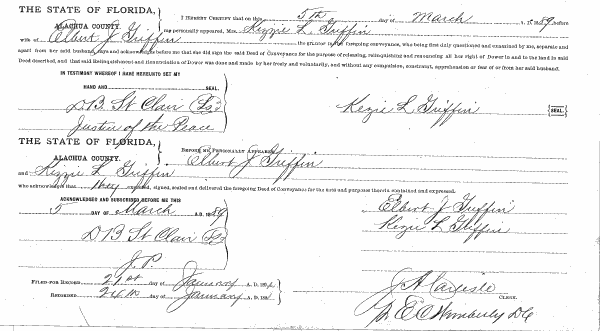 THE STATE OF FLORIDA,
ALACHUA COUNTY.
I HEREBY CERTIFY that on this 5th day of March A. D. 1889, before
me personally appeared, Mrs. Kezzie L. Griffin
wife of Elbert J Griffin the grantor in the foregoing conveyance, who being first duly questioned and examined by me, separate and
apart from her said husband, says and acknowledges that she did sign the said Deed of Conveyance for the purpose of releasing, relinquishing and renouncing all her right of Dower in and to the land in said
Deed described, and that said Relinquishment and Renunciation of Dower was done and made by her freely and voluntarily, and without any compulsion, constraint, apprehension or fear of or from her said husband.
IN TESTIMONY WHEREOF I HAVE HEREUNTO SET MY
HAND AND SEAL.
D B St Clair
Kezie L Griffin SEAL.
Justice of the Peace
THE STATE OF FLORIDA,
ALACHUA COUNTY.
BEFORE ME PERSONALLY APPEARED Elbert J Griffin
and Kezzie L Griffin
who acknowledged that they executed, signed, sealed and delivered the foregoing Deed of Conveyance for the uses and purpose therein contained and expressed.
ACKNOWLEDGED AND SUBSCRIBED BEFORE ME THIS
5 DAY OF March A.D. 1889
Elbert J Griffin
Kezie L Griffin
D B St Clair
J. P.
FILED FOR RECORD 21st day of January A. D. 189
RECORDED 24th day of January A.D. 189
J A Carlisle
CLERK.
E C Wimberly DC